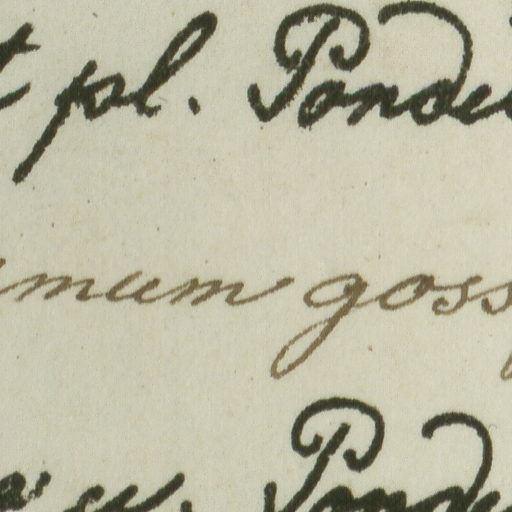 t pl. Pondi
mum goss
Pondi